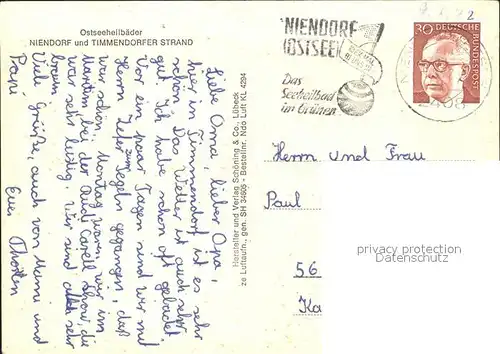 Ostseeheilbäder
NIENDORF und TIMMENDORFER STRAND
Liebe Oma, lieber Opa,
hier in Timmendorf ist es sehr
schön. Das Wetter ist auch sehr
gut. Ich habe schon oft gebadet.
Vor ein paar Tagen sind wir mit
Herrn zum Segeln gegangen, daß
war schön. Montag waren wir im
Maritim, bei der Rudi Carell Show, die
war sehr lustig. Wir sind sehr
braun.
Viele Grüße, auch von Mami und
Papi
Euer Thorsten
Hersteller und Verlag Schöning & Co., Lübeck
ze Luftaufn., gen.: SH 34905 - Bestellnr. Ndo Luft KL 4294
NIENDORF
(OSTSEE)
Das
Seeheilbad
im Grünen
30 DEUTSCHE
BUNDESPOST
2408
Herrn und Frau
Paul
56
Ka
privacy protection
Datenschutz